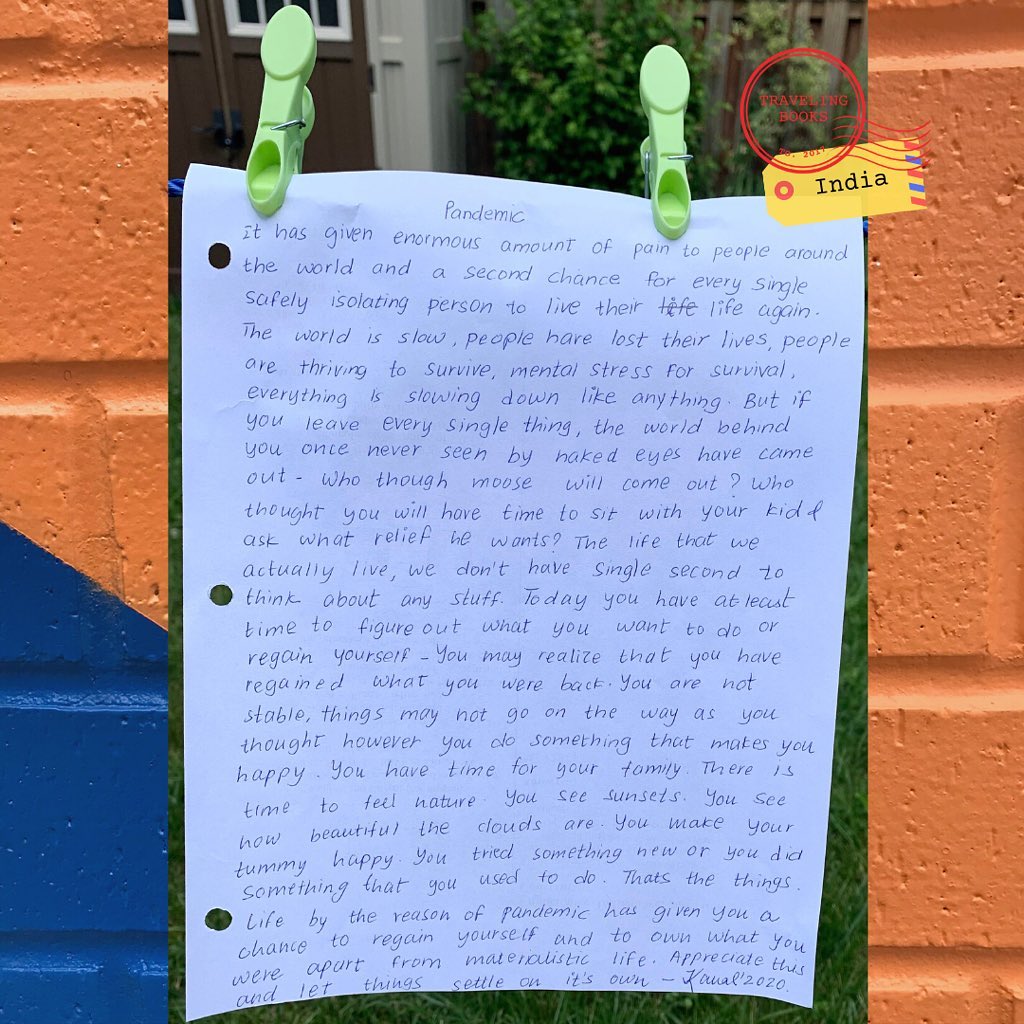 TRAVELING
BOOKS
India
Pandemic
It has given enormous amount of pain to people around
the world and a second chance for every single
safely isolating person to live their life life again.
The world is slow, people have lost their lives, people
are thriving to survive, mental stress for survival,
everything is slowing down like anything. But if
you leave every single thing, the world behind
you once never seen by naked eyes have came
out - who though moose will come out? Who
thought you will have time to sit with your kid &
ask what relief he wants? The life that we
actually live, we don't have single second to
think about any stuff. Today you have atleast
time to figure out what you want to do or
regain yourself - You may realize that you have
regained what you were back. You are not
stable, things may not go on the way as you
thought however you do something that makes you
happy. You have time for your family. There is
time to feel nature. You see sunsets. You see
how beautiful the clouds are. You make your
tummy happy. You tried something new or you did
something that you used to do. Thats the things.
Life by the reason of pandemic has given you a
chance to regain yourself and to own what you
were apart from materialistic life. Appreciate this
and let things settle on it's own - 2020.